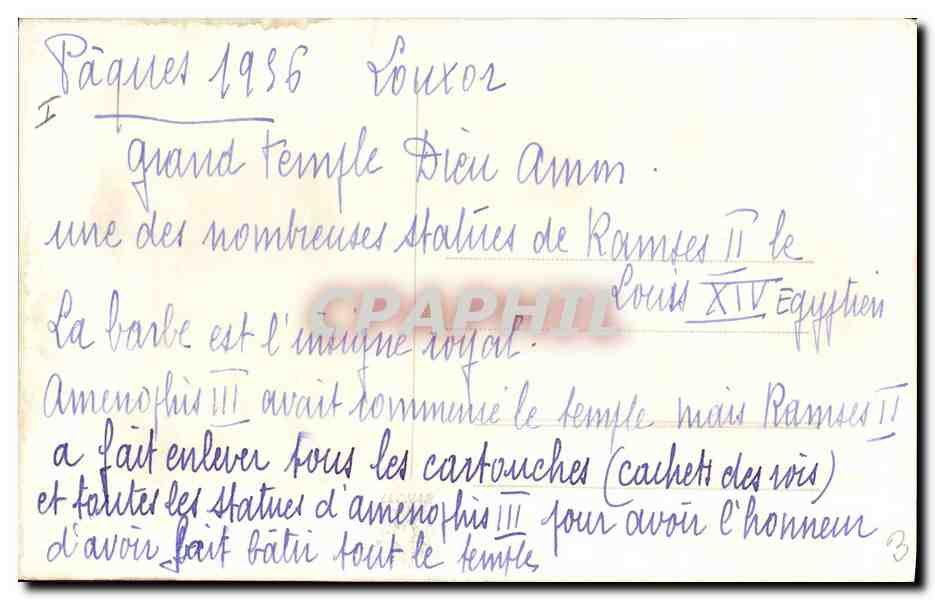 Pâques 1936 Louxor
I
grand temple Dieu Amon.
une des nombreuses statues de Ramses II le
Louis XIV Egyptien
CPAPHIL
La barbe est l'insigne royal.
Amenophis III avait commencé le temple mais Ramses II
a fait enlever tous les cartouches (cachets des rois)
et toutes les statues d'amenophis III pour avoir l'honneur
d'avoir fait bâtir tout le temple
3